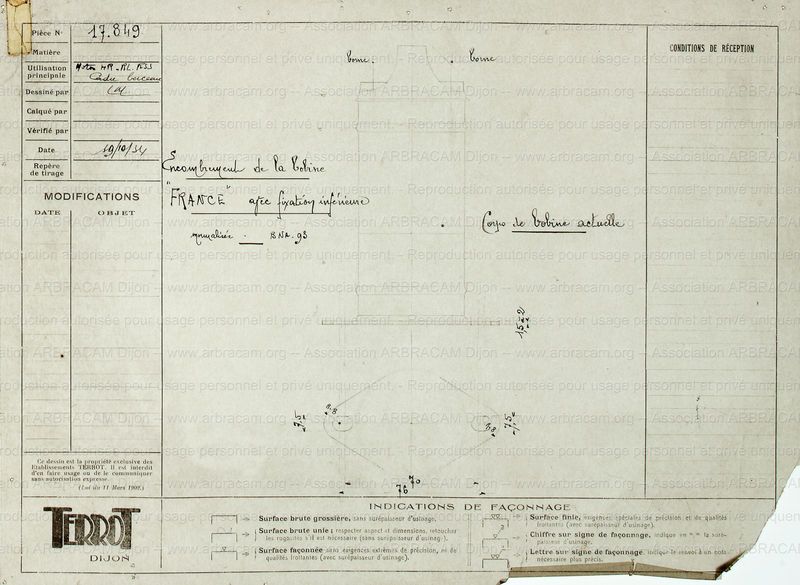 Pièce N° 17.849
Matière
Utilisation
principale
Dessiné par
Calqué par
Vérifié par
Date 19/10/34
Repère
de tirage
MODIFICATIONS
DATE OBJET
borne borne
Encombrement de la bobine
"FRANCE" avec fixation inférieure
normalisée BNA. 93
Corps de bobine actuelle
CONDITIONS DE RÉCEPTION
15
22
7,5
8,8
8,8
7,5
70
76
Ce dessin est la propriété exclusive des
Etablissements TERROT. Il est interdit
d'en faire usage ou de le communiquer
sans autorisation expresse.
(Loi du 11 Mars 1902.)
TERROT
DIJON
INDICATIONS DE FAÇONNAGE
Surface brute grossière, sans surépaisseur d'usinage.
Surface brute unie : respecter aspect et dimensions, retoucher
les rugosités s'il est nécessaire (sans surépaisseur d'usinage).
Surface façonnée sans exigences extrêmes de précision, ni de
qualités frottantes (avec surépaisseur d'usinage).
Surface finie, exigences spéciales de précision et de qualités
frottantes (avec surépaisseur d'usinage).
Chiffre sur signe de façonnage, indique en m/m la surépaisseur
d'usinage.
Lettre sur signe de façonnage, indique le renvoi à un
nécessaire plus précis.
Reproduction autorisée pour usage personnel et privé uniquement. - www.arbracam.org -- Association ARBRACAM Dijon